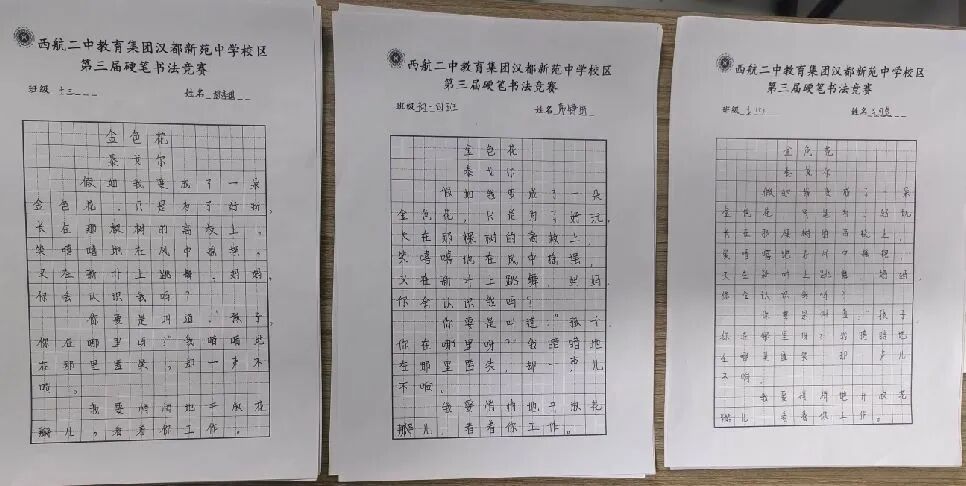 西航二中教育集团汉都新苑中学校区
第三届硬笔书法竞赛
班级 十三
姓名
金色花
泰戈尔
假如我变成了一朵
金色花,只是为了好玩,
长在那棵树的高枝上,
笑嘻嘻地在风中摇摆,
又在新叶上跳舞,妈妈,
你会认识我吗?
你要是叫道:“孩子,
你在哪里呀?”我暗暗地
在那里匿笑,却一声不
响。
我要悄悄地开放花
瓣儿,看着你工作。
西航二中教育集团汉都新苑中学校区
第三届硬笔书法竞赛
班级
姓名
金色花
泰戈尔
假如我变成了一朵
金色花,只是为了好玩,
长在那棵树的高枝上,
笑嘻嘻地在风中摇摆,
又在新叶上跳舞,妈妈
你会认识我吗?
你要是叫道:“孩子
你在哪里呀?”我暗暗地
在那里匿笑,却一声儿
不响。
我要悄悄地开放花
瓣儿,看着你工作。
西航二中教育集团汉都新苑中学校区
第三届硬笔书法竞赛
班级
姓名
金色花
泰戈尔
假如我变成了一朵
金色花 只是为了好玩
长在那棵树的高枝上,
笑嘻嘻地在风中摇摆
又在新叶上跳舞 妈妈
你会认识我吗?
你要是叫道:“孩子
你在哪里呀?”我暗暗地
在那里匿笑 却 声儿
不响。
我要悄悄地开放花
瓣儿 看着你工作。